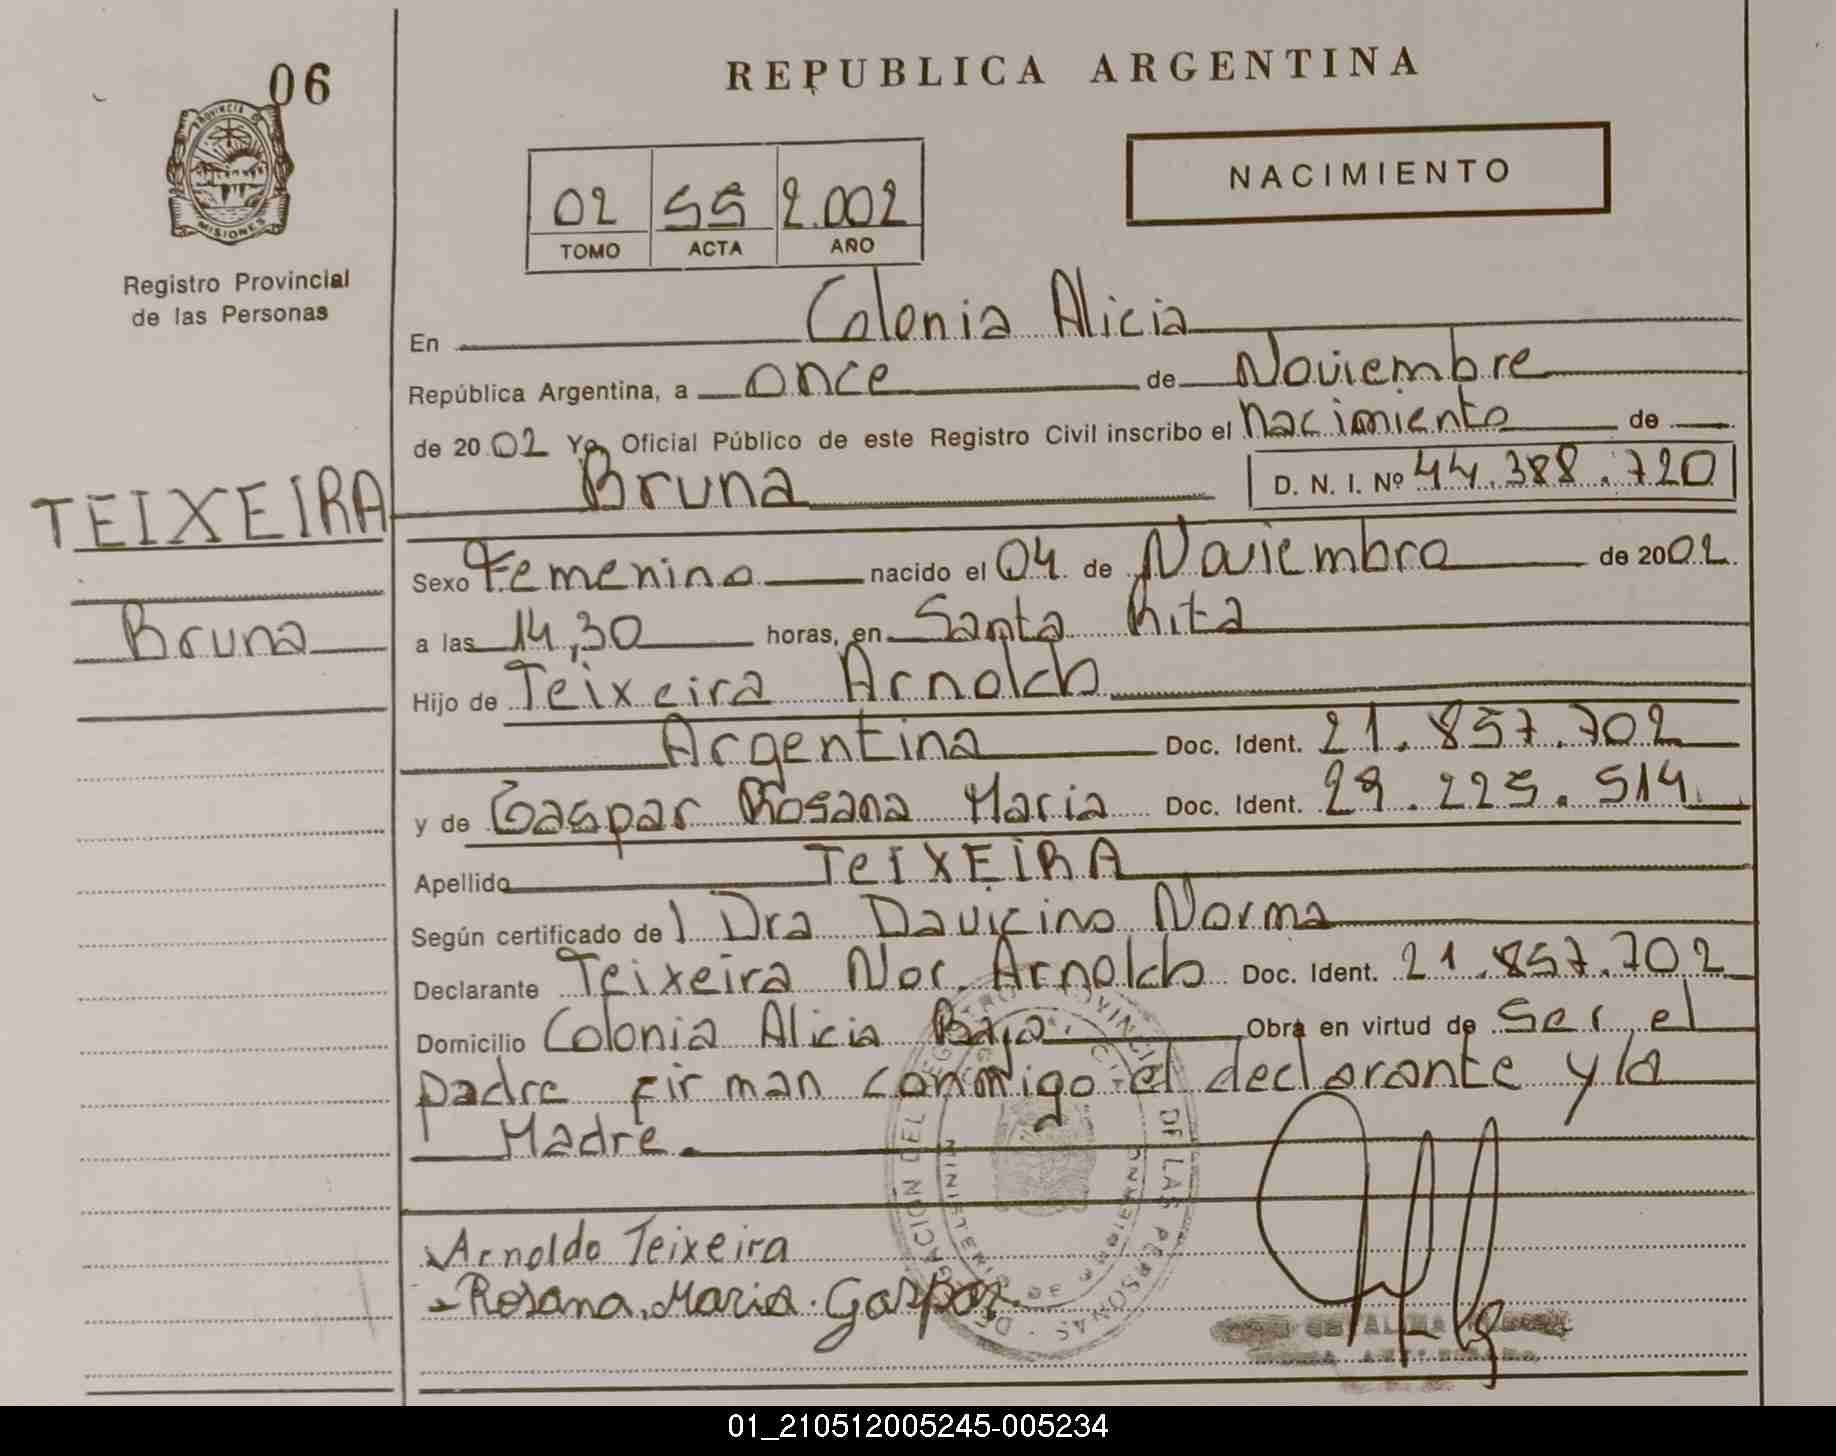 06
PROVINCIA DE
MISIONES
Registro Provincial
de las Personas
TEIXEIRA
Bruna
REPUBLICA ARGENTINA
02 55 2.002
TOMO ACTA AÑO
NACIMIENTO
En Colonia Alicia
República Argentina, a once de Noviembre
de 2002 Yo Oficial Público de este Registro Civil inscribo el nacimiento de
Bruna D. N. I. Nº 44.388.720
Sexo Femenino nacido el 04 de Noviembre de 2002.
a las 14,30 horas, en Santa Rita
Hijo de Teixeira Arnoldo
Argentina Doc. Ident. 21.857.702
y de Gaspar Rosana Maria Doc. Ident. 29.225.514
Apellido TeIXEIRA
Según certificado de Dra Davicino Norma
Declarante Teixeira Arnoldo Doc. Ident. 21.857.702
Domicilio Colonia Alicia Baja. Obra en virtud de ser el
padre firman conmigo el declarante y la
Madre.
Arnoldo Teixeira
Rosana Maria Gaspar
DELEGACION DEL REGISTRO PROVINCIAL DE LAS PERSONAS
01_210512005245-005234